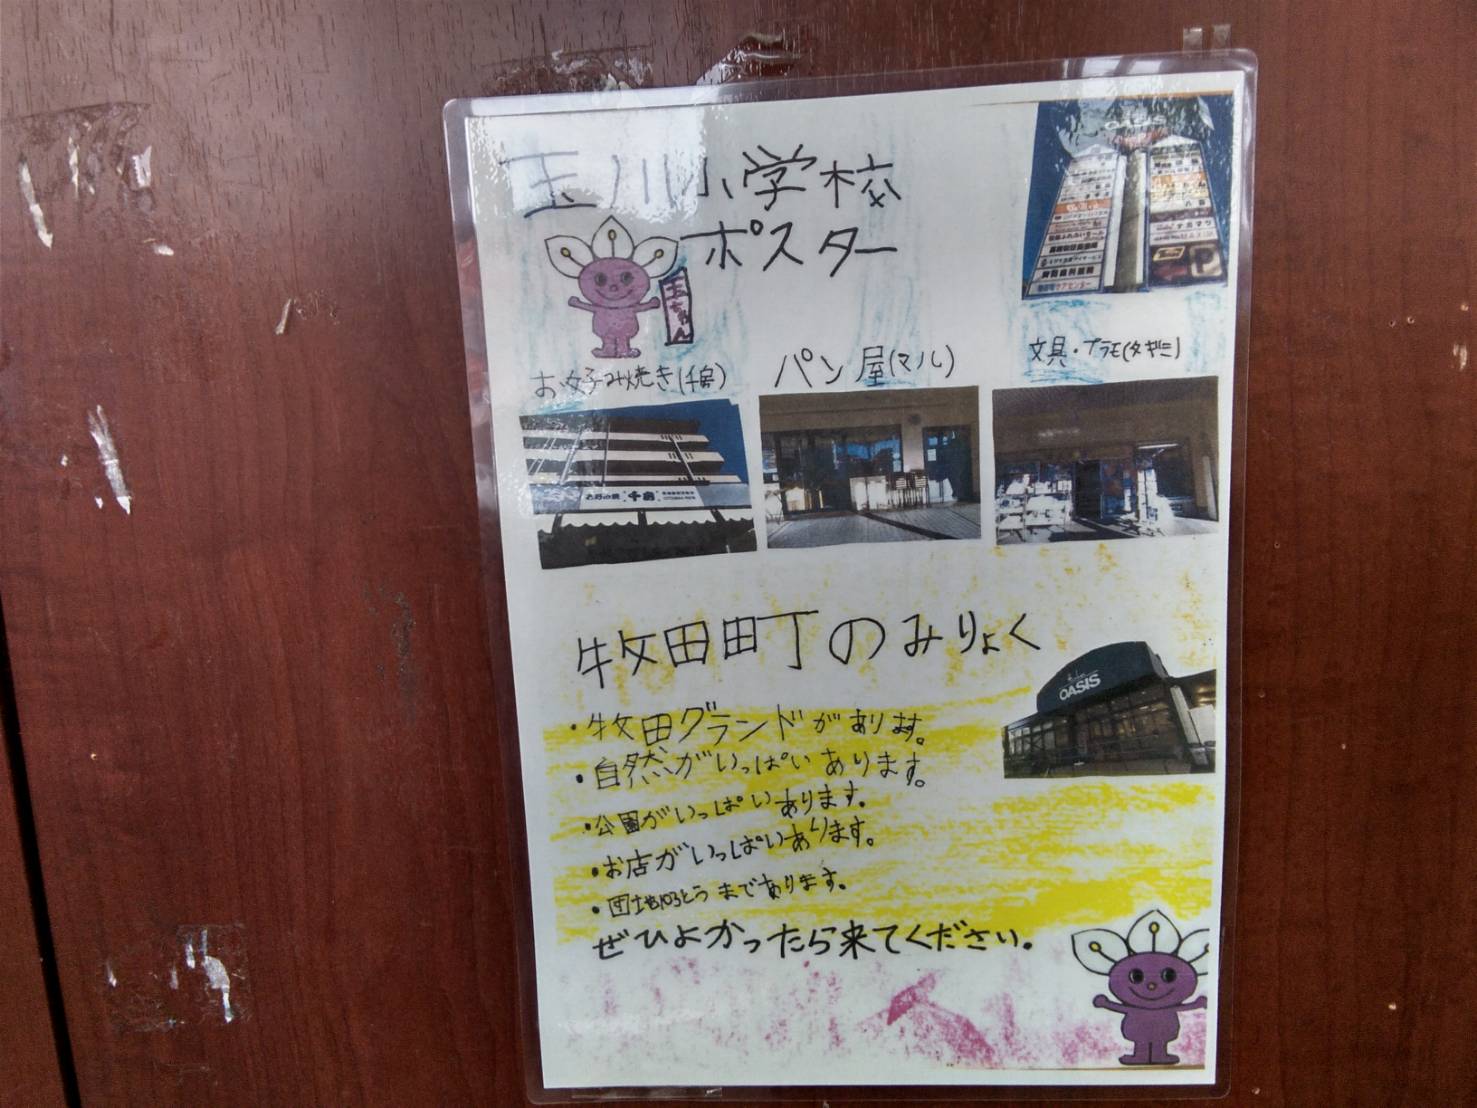 玉川小学校
ポスター
玉ちゃん
OASIS
P
お好み焼き(千房)
パン屋(マル)
文具・プラモ(タギミ)
お好み焼 千房
牧田町のみりょく
OASIS
・牧田グランドがあります。
・自然がいっぱいあります。
・公園がいっぱいあります.
・お店がいっぱいあります。
・団地103とうまであります.
ぜひよかったら来てください.